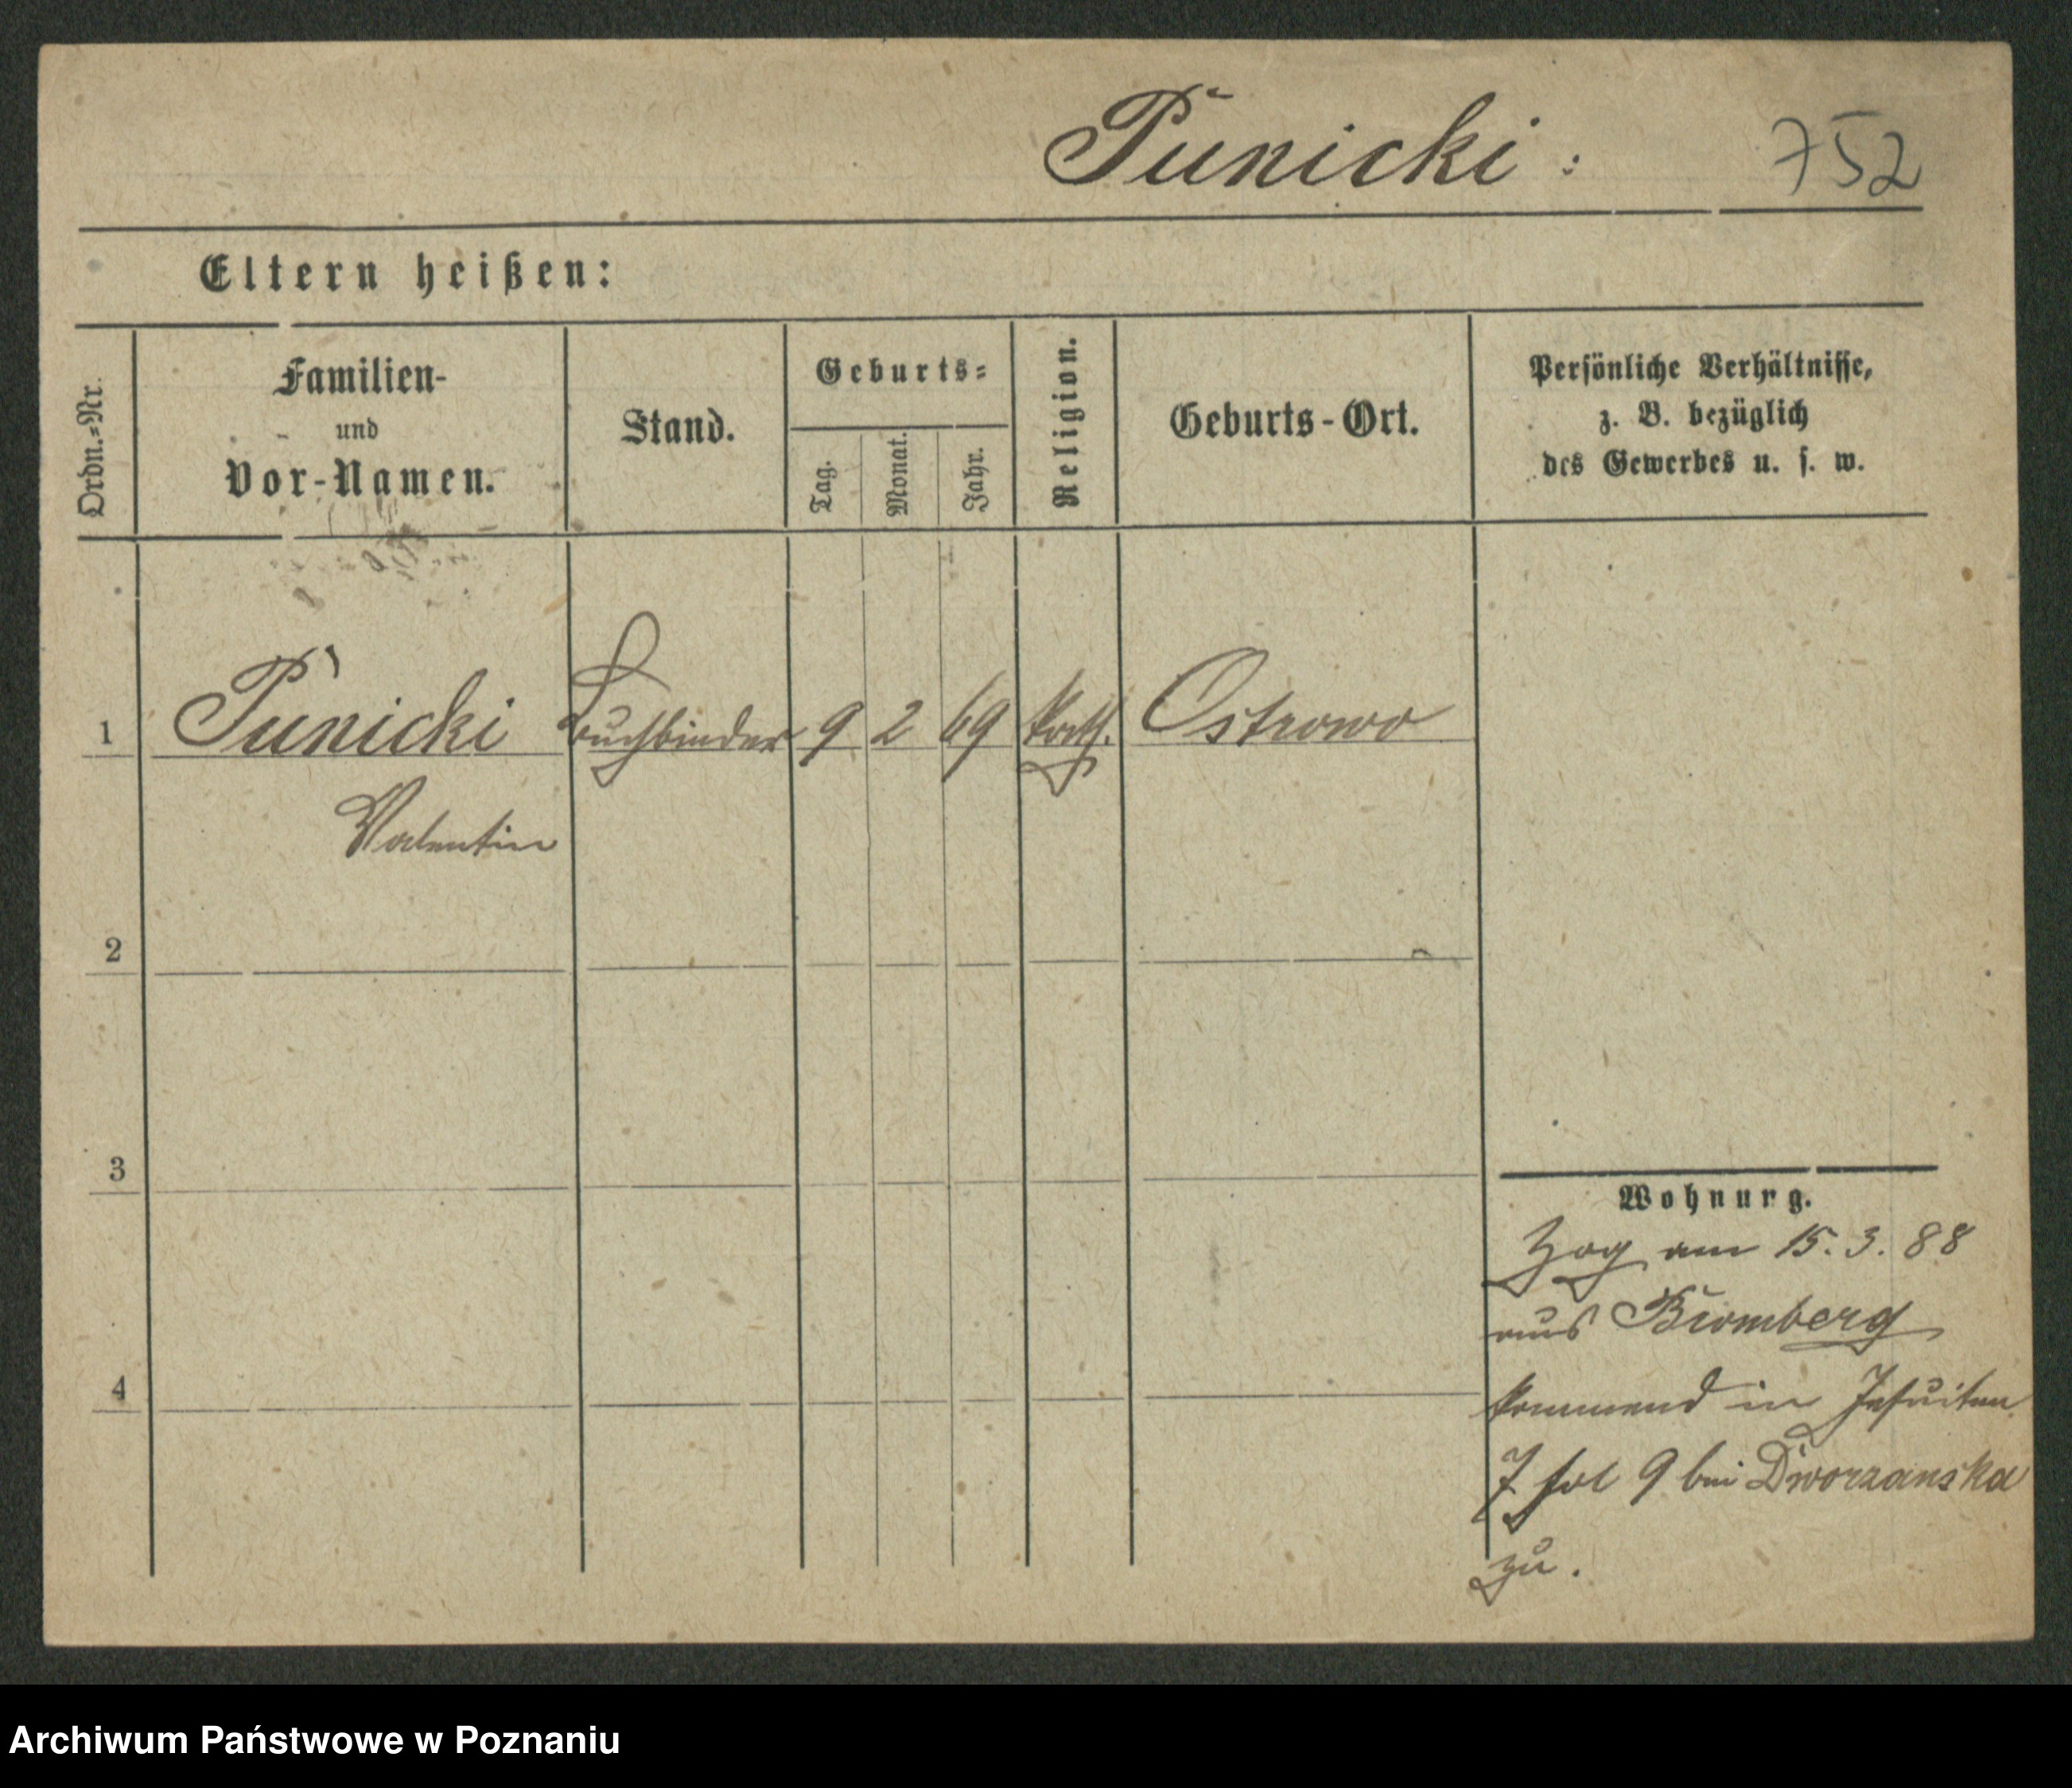 Punicki :
752
Eltern heißen:
Ordn.=Nr.
Familien-
und
Vor-Namen.
Stand.
Geburts=
Tag.
Monat.
Jahr.
Religion.
Geburts-Ort.
Persönliche Verhältnisse,
z. B. bezüglich
des Gewerbes u. s. w.
1 Punicki Buchbinder 9 2 69 kath. Ostrowo
Valentin
2
3
4
Wohnurg.
Zog am 15. 3. 88
aus Bromberg
kommend in Jesuiten
7 bei Dworzanska
zu.
Archiwum Państwowe w Poznaniu